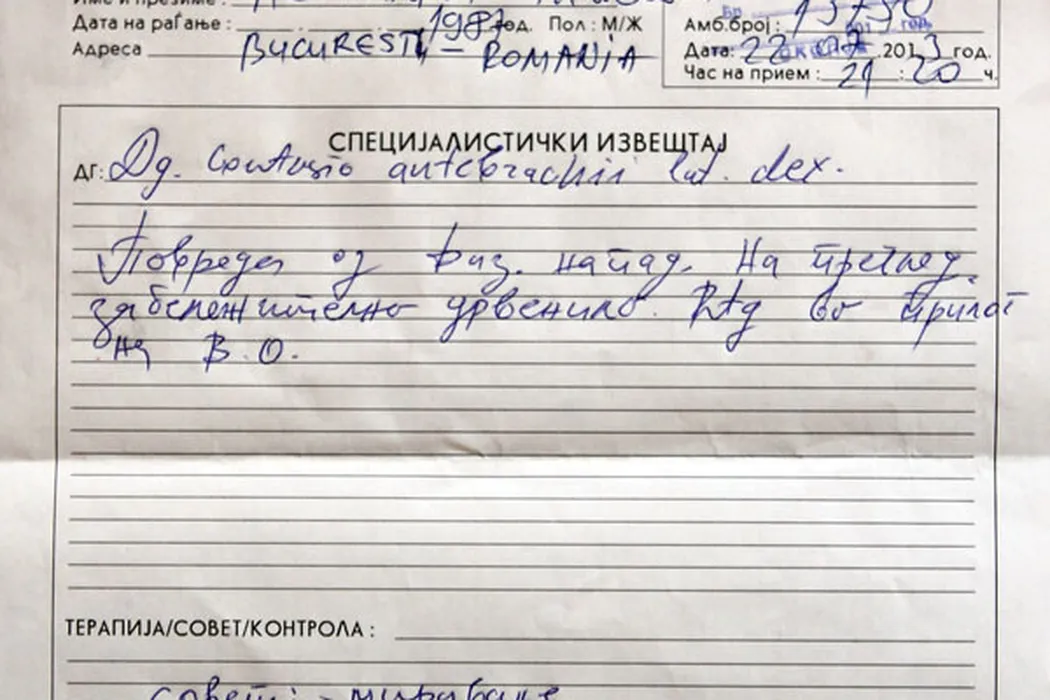 Име и презиме :
Дата на раѓање : 1987 год. Пол : М/Ж
Адреса BUCUREST – ROMANIA
Амб.број :
Дата: 22 07 .2013 год.
Час на прием : 21 : 20 ч.
СПЕЦИЈАЛИСТИЧКИ ИЗВЕШТАЈ
ДГ: Dg. Contusio antebrachii lat. dex.
Повреда од физ. напад. На преглед
забележително црвенило. Rtg во прилог
на В.О.
ТЕРАПИЈА/СОВЕТ/КОНТРОЛА :
совет: - мирување